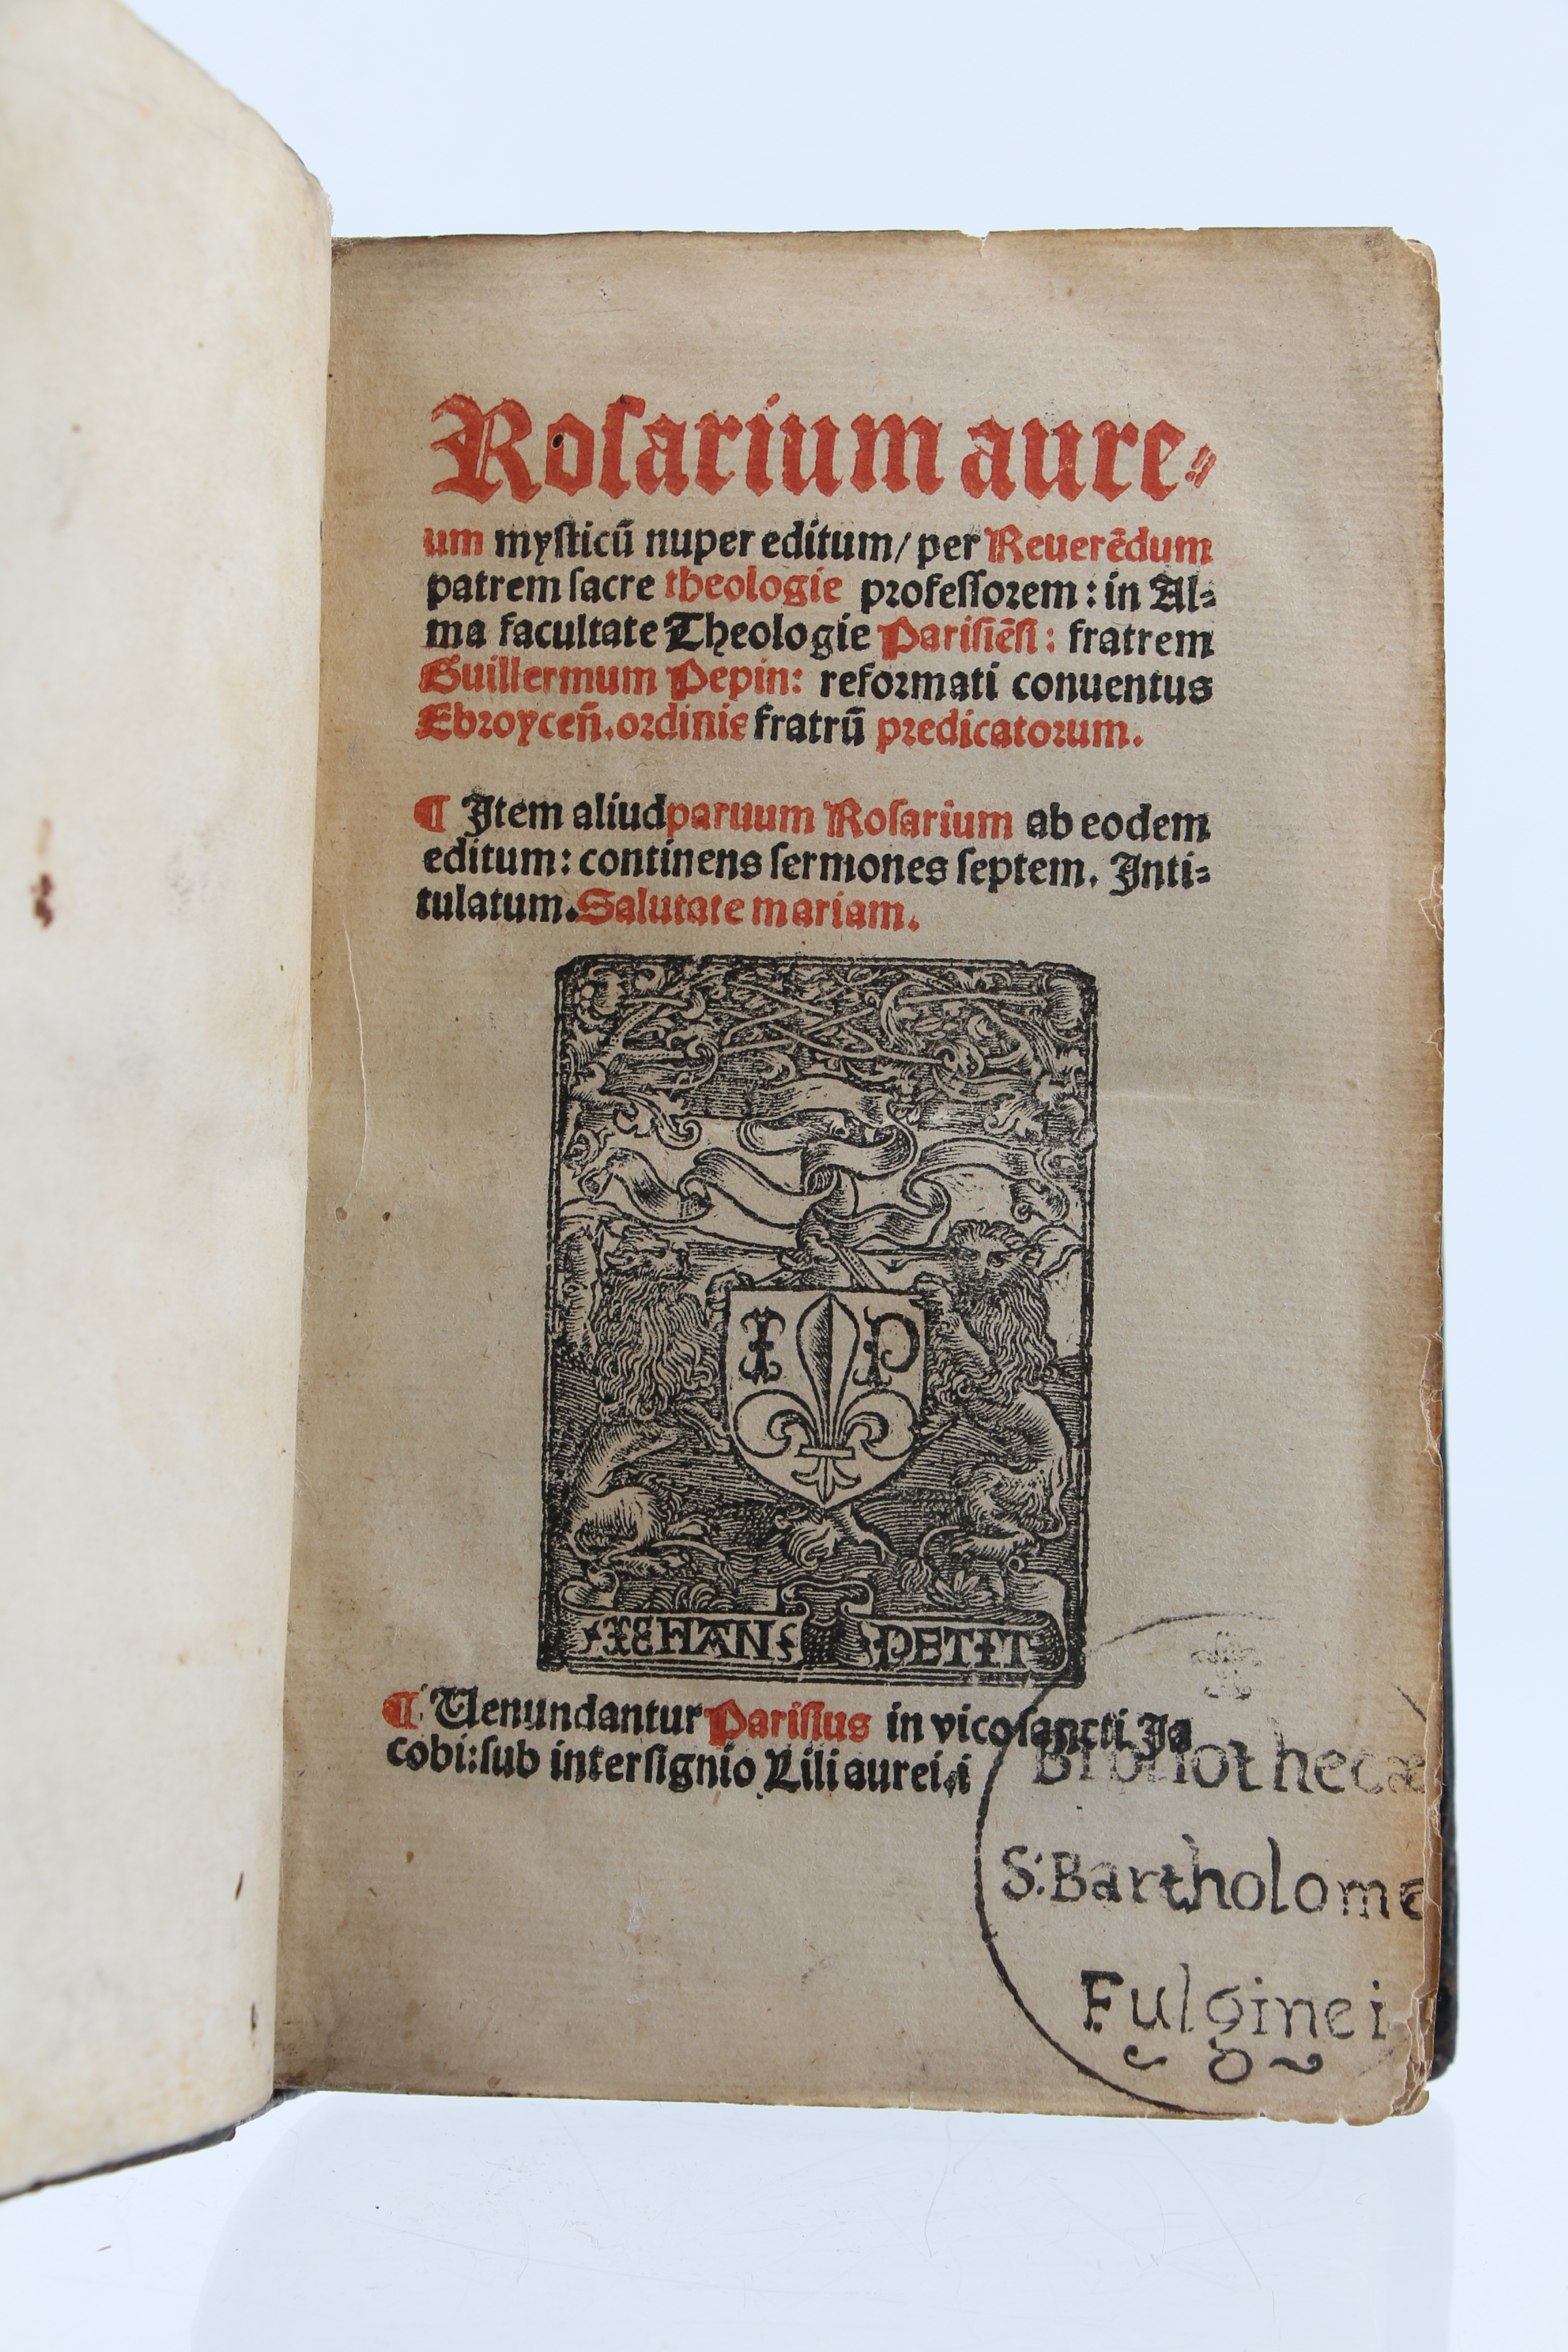 Roſarium aure⸗
um myſticū nuper editum/ per Reuerēdum
patrem ſacre theologie profeſſorem: in Al⸗
ma facultate Theologie Pariſiēſi: fratrem
Guillermum Pepin: reformati conuentus
Ebroyceñ. ordinis fratrū predicatorum.
¶ Item aliud paruum Roſarium ab eodem
editum: continens ſermones ſeptem. Inti⸗
tulatum. Salutate mariam.
I P
IEHAN PETIT
¶ Uenundantur Pariſius in vico ſancti Ja
cobi: ſub interſignio Lilii aurei.
Bibliothecæ
S. Bartholome
Fulginei